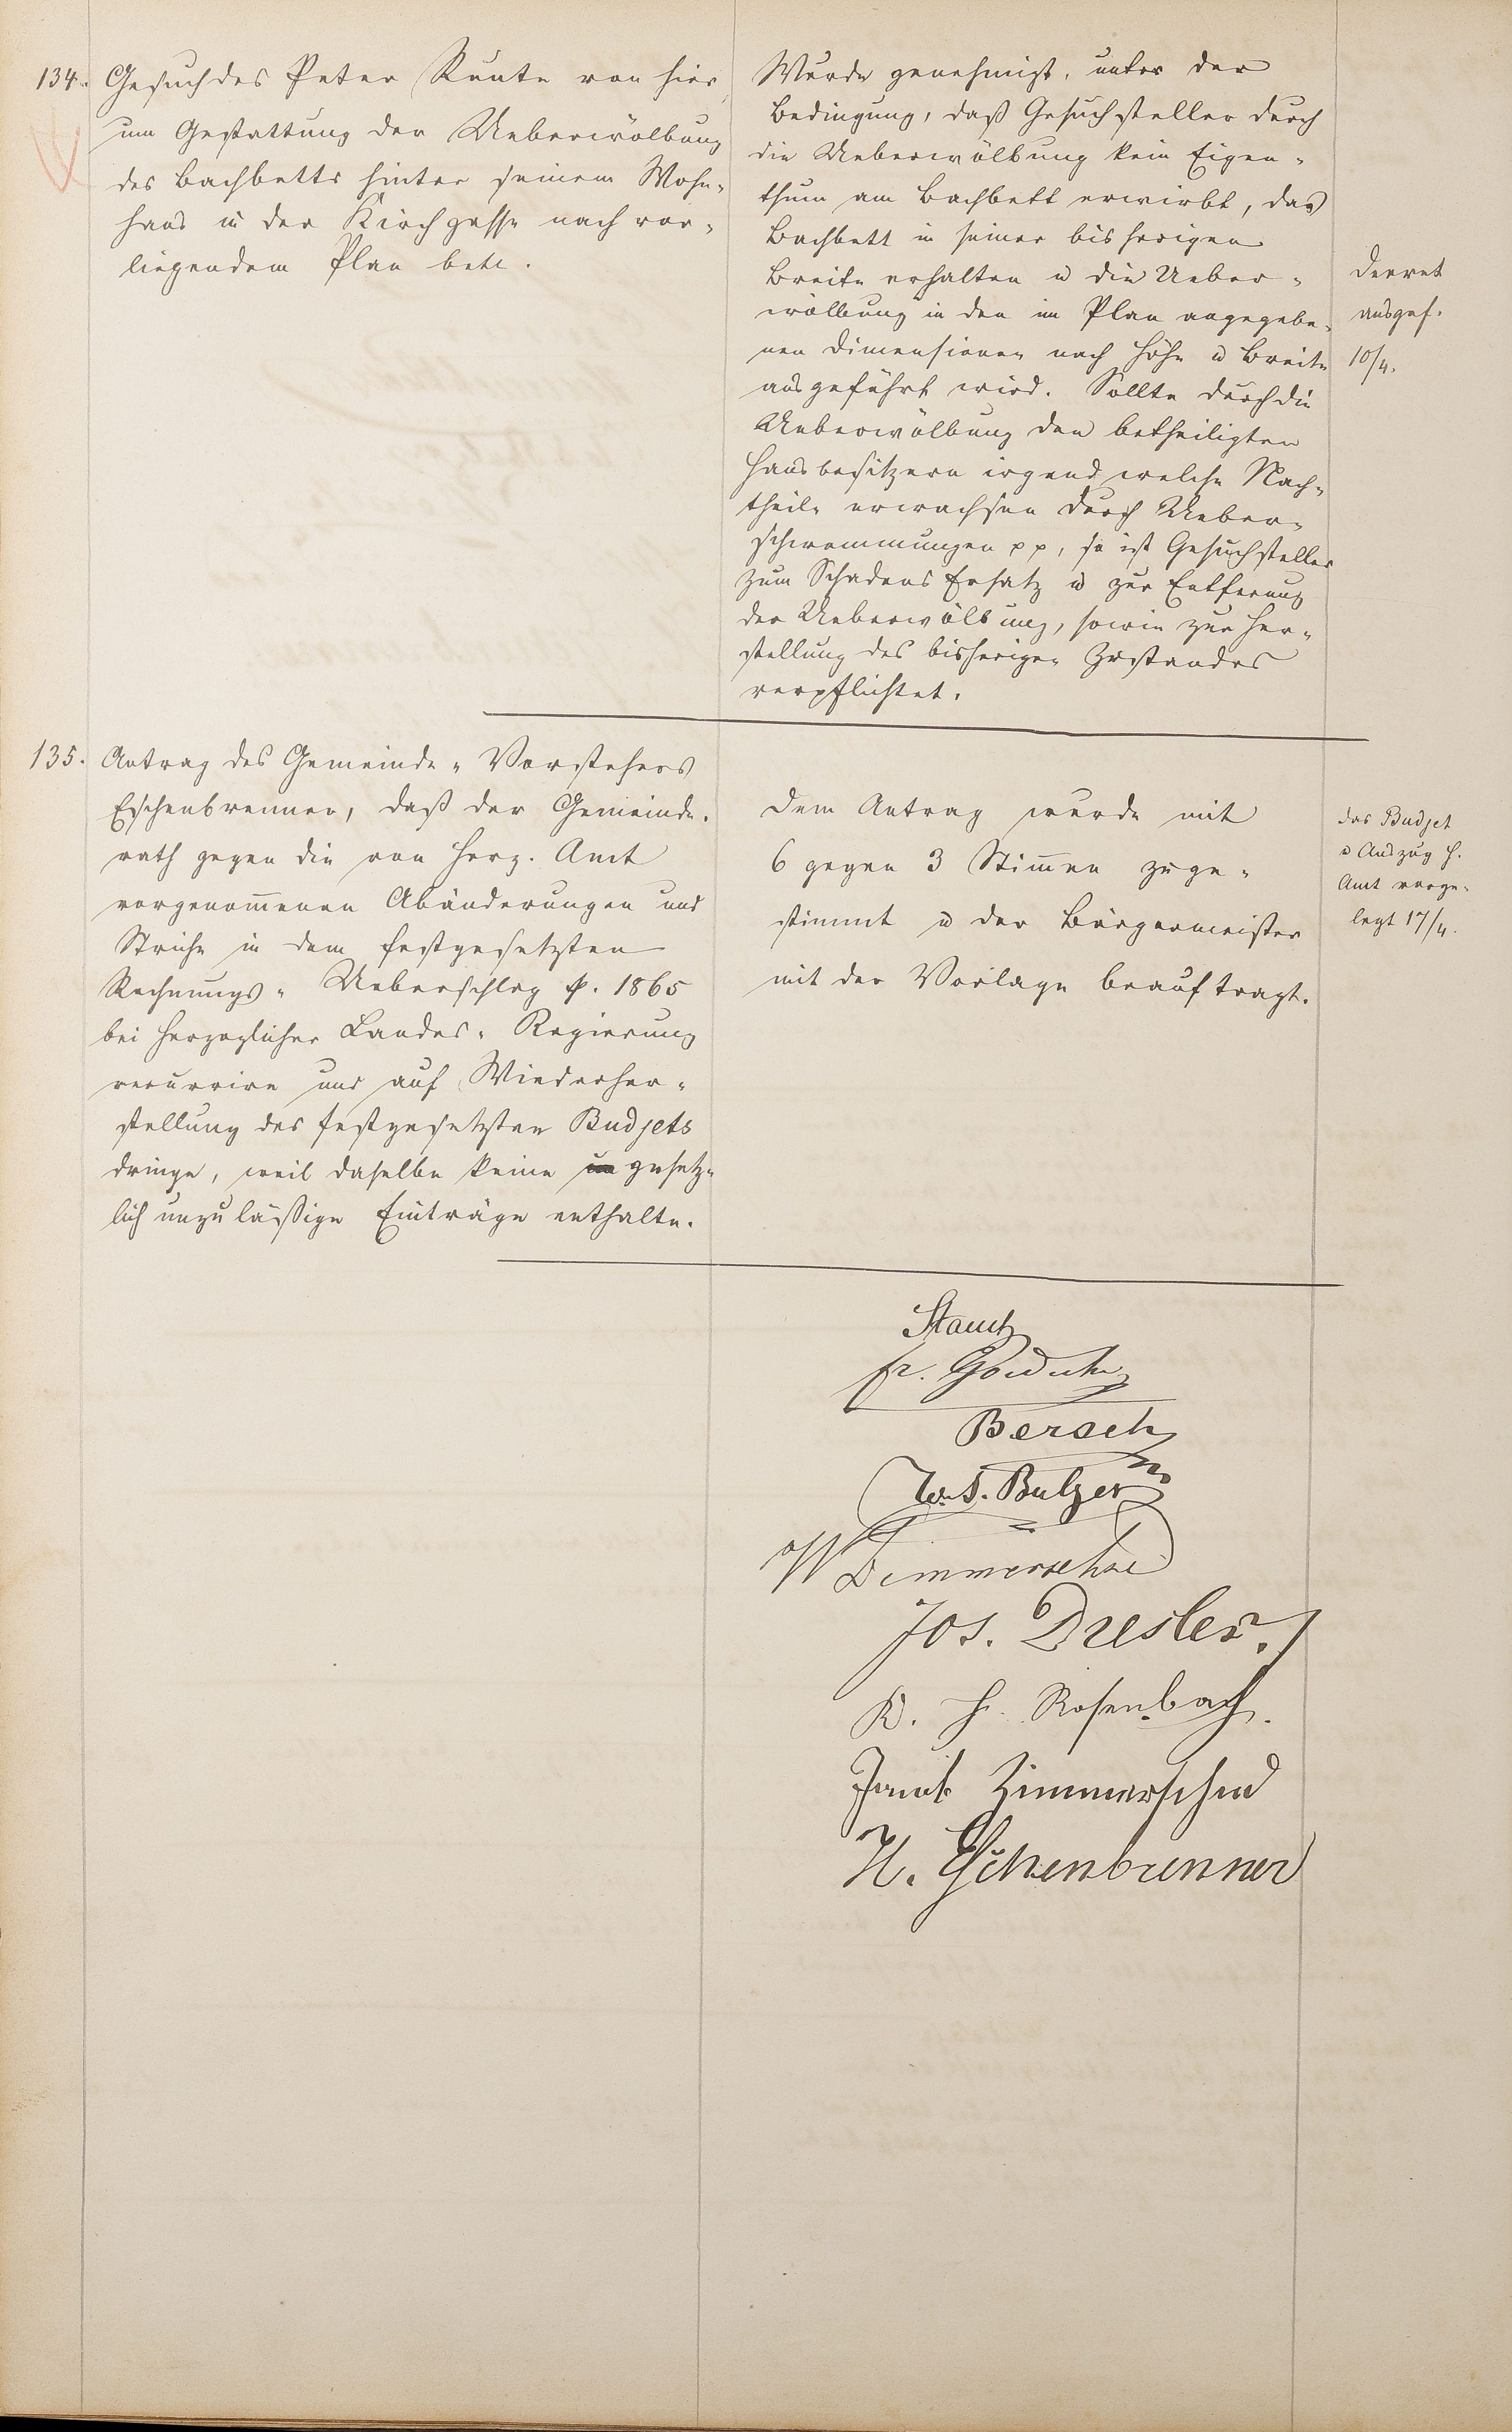 134. Gesuch des Peter Runte von hier
um Gestattung der Ueberwölbung
des Bachbetts hinter seinem Wohn-
haus in der Kirchgasse nach vor-
liegendem Plan betr.
Wurde genehmigt, unter der
Bedingung, daß Gesuchsteller durch
die Ueberwölbung kein Eigen-
thum am Bachbett erwirbt, das
Bachbett in seiner bisherigen
Breite erhalten u die Ueber-
wölbung in den im Plan angegebe-
nen Dimensionen nach Höhe u Breite
ausgeführt wird. Sollte durch die
Ueberwölbung den betheiligten
Hausbesitzern irgend welche Nach-
theile erwachsen durch Ueber-
schwemmungen pp, so ist Gesuchsteller
zum Schadens Ersatz u zur Entfernung
der Ueberwölbung, sowie zur Her-
stellung des bisherigen Zustandes
verpflichtet.
Decret
ausgef.
10/4.
135. Antrag des Gemeinde-Vorstehers
Eschenbrenner, daß der Gemeinde-
rath gegen die von Herz. Amt
vorgenom̅enen Abänderungen und
Striche in dem festgesetzten
Rechnungs-Ueberschlag p. 1865
bei Herzoglicher Landes-Regierung
recurrire und auf Wiederher-
stellung des festgesetzten Budjets
dringe, weil daselbe keine gesetz-
lich unzuläßige Einträge enthalte.
Dem Antrag wurde mit
6 gegen 3 Stim̅en zuge-
stimmt u der Bürgermeister
mit der Vorlage beauftragt.
das Budjet
u Auszug H.
Amt vorge-
legt 17/4.
Bersch
W. S. Bulzer
W Zimmerschied
Jos. Dresler.
K. H. Rosenbach.
Jacob Zimmerschied
H. Eschenbrenner